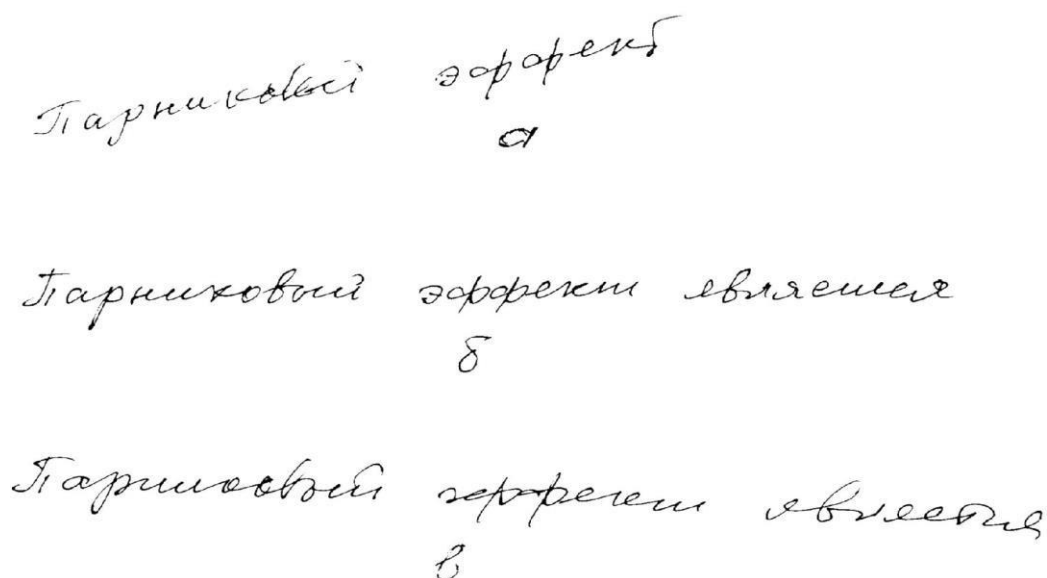 Парниковый эффект
а
Парниковый эффект является
б
Парниковый эффект является
в